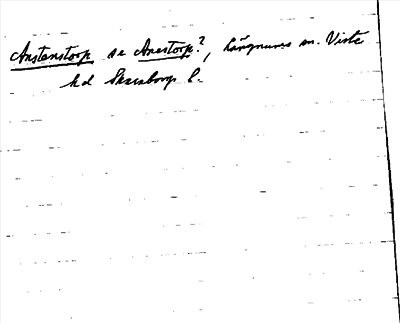 Anstenstorp se Anestorp?, Långnums sn. Viste
hd Skaraborgs l.